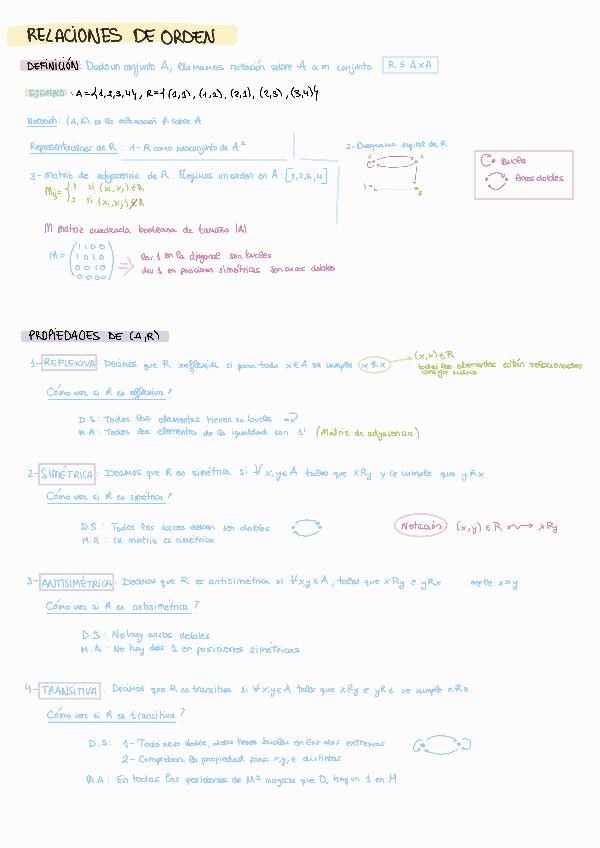 RELACIONES DE ORDEN
DEFINICIÓN: Dado un conjunto A, llamamos relación sobre A a un conjunto R ⊆ AxA
EJEMPLO: A={1,2,3,4}, R={(1,1), (1,2), (2,1), (2,3), (3,4)}
Notación: (A,R) es la relación R sobre A
Representaciones de R: 1-R como subconjunto de A²
2-Diagrama sagital de R
Bucle
Arcos dobles
3-Matriz de adyacencia de R. Elegimos un orden en A: [1,2,3,4]
Mij= { 1 si (xi,xj)∈R
2 si (xi,xj)∉R
M matriz cuadrada booleana de tamaño |A|
M= (1 1 0 0
1 0 1 0
0 0 1 0
0 0 0 0)
los 1 en la diagonal son bucles
dos 1 en posiciones simétricas son arcos dobles
PROPIEDADES DE (A,R)
1-REFLEXIVA: Decimos que R reflexiva si para todo x∈A se cumple xRx → (x,x)∈R
todos los elementos están relacionados consigo mismo
Cómo ver si R es reflexiva?
D.S: Todos los elementos tienen su bucle
M.A: Todos los elementos de la igualdad son 1 (Matriz de adyacencia)
2-SIMÉTRICA: Decimos que R es simétrica si ∀x,y∈A tales que xRy y se cumple que yRx
Cómo ver si R es simétrica?
D.S: Todos los arcos deben ser dobles
M.A: La matriz es simétrica
Notación (x,y)∈R → xRy
3-ANTISIMÉTRICA: Decimos que R es antisimetrica si ∀x,y∈A, tales que xRy e yRx mple x=y
Cómo ver si R es antisimétrica?
D.S: No hay arcos dobles
M.A: No hay dos 1 en posiciones simétricas
4-TRANSITIVA: Decimos que R es transitiva si ∀x,y∈A tales que xRy e yRz se cumple xRz
Cómo ver si R es transitiva?
D.S: 1-Todo arco doble, debe tener bucles en los dos extremos
2-Comprobar la propiedad para x,y,z distintas
M.A: En todas las posiciones de M² mayores que 0, hay un 1 en M